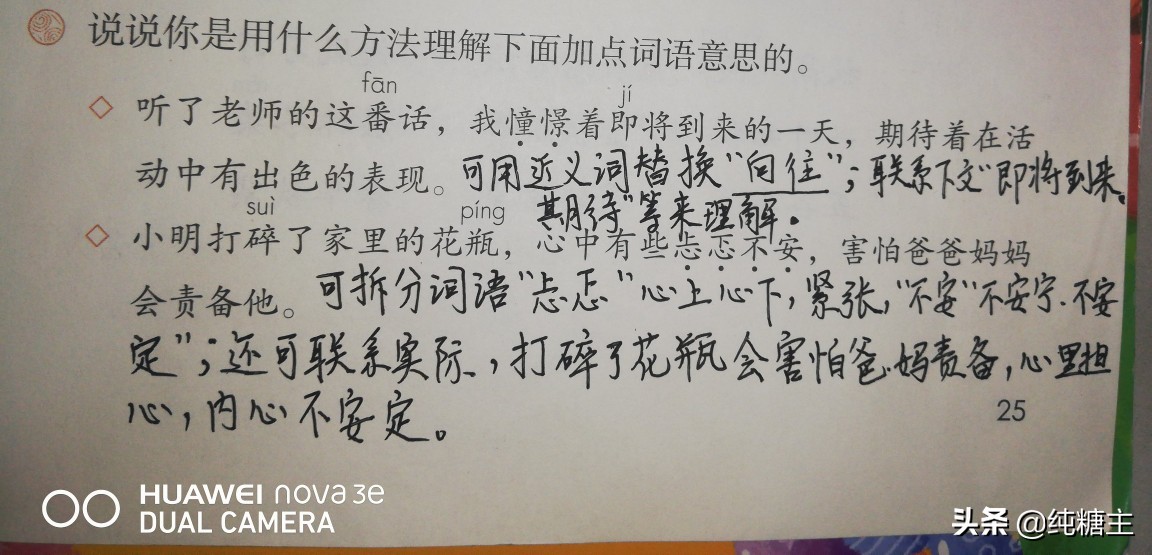 说说你是用什么方法理解下面加点词语意思的。
fān jí
◇ 听了老师的这番话，我憧憬着即将到来的一天，期待着在活
动中有出色的表现。可用近义词替换"向往"；联系下文"即将到来。
suì píng 期待"等来理解。
◇ 小明打碎了家里的花瓶，心中有些忐忑不安，害怕爸爸妈妈
会责备他。可拆分词语"忐忑"心上心下，紧张，"不安"不安宁.不安
定"；还可联系实际，打碎了花瓶会害怕爸.妈责备，心里担
心，内心不安定。
25
HUAWEI nova 3e
DUAL CAMERA
头条 @纯糖主